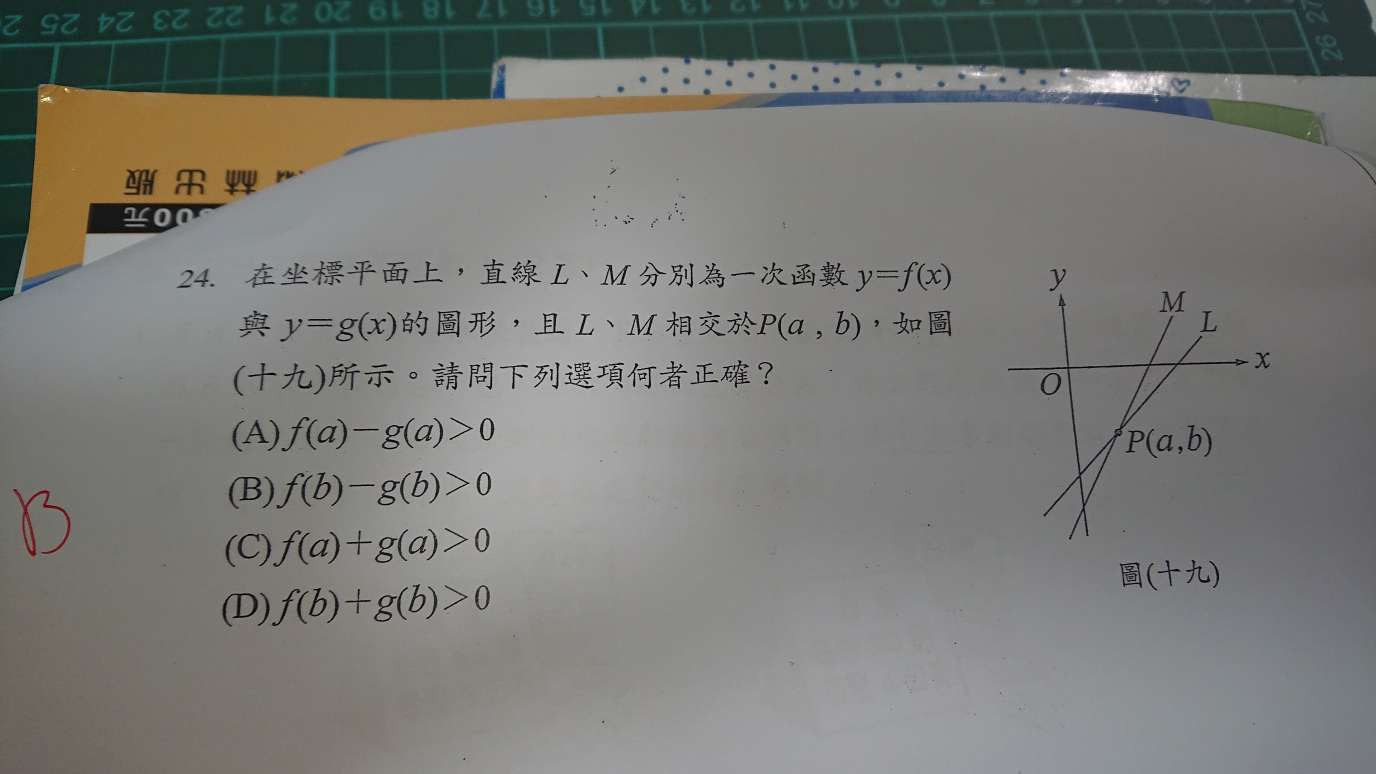 25 24 23 22 21 20 19 18 17 16 15 14 13 12 11 10 9 8 7 6
26 27
林 出 版
00元
24. 在坐標平面上，直線 L、M 分別為一次函數 y=f(x)
與 y=g(x)的圖形，且 L、M 相交於P(a , b)，如圖
(十九)所示。請問下列選項何者正確？
(A) f(a)－g(a)＞0
(B) f(b)－g(b)＞0
(C) f(a)＋g(a)＞0
(D) f(b)＋g(b)＞0
B
y
M
L
x
O
P(a,b)
圖(十九)